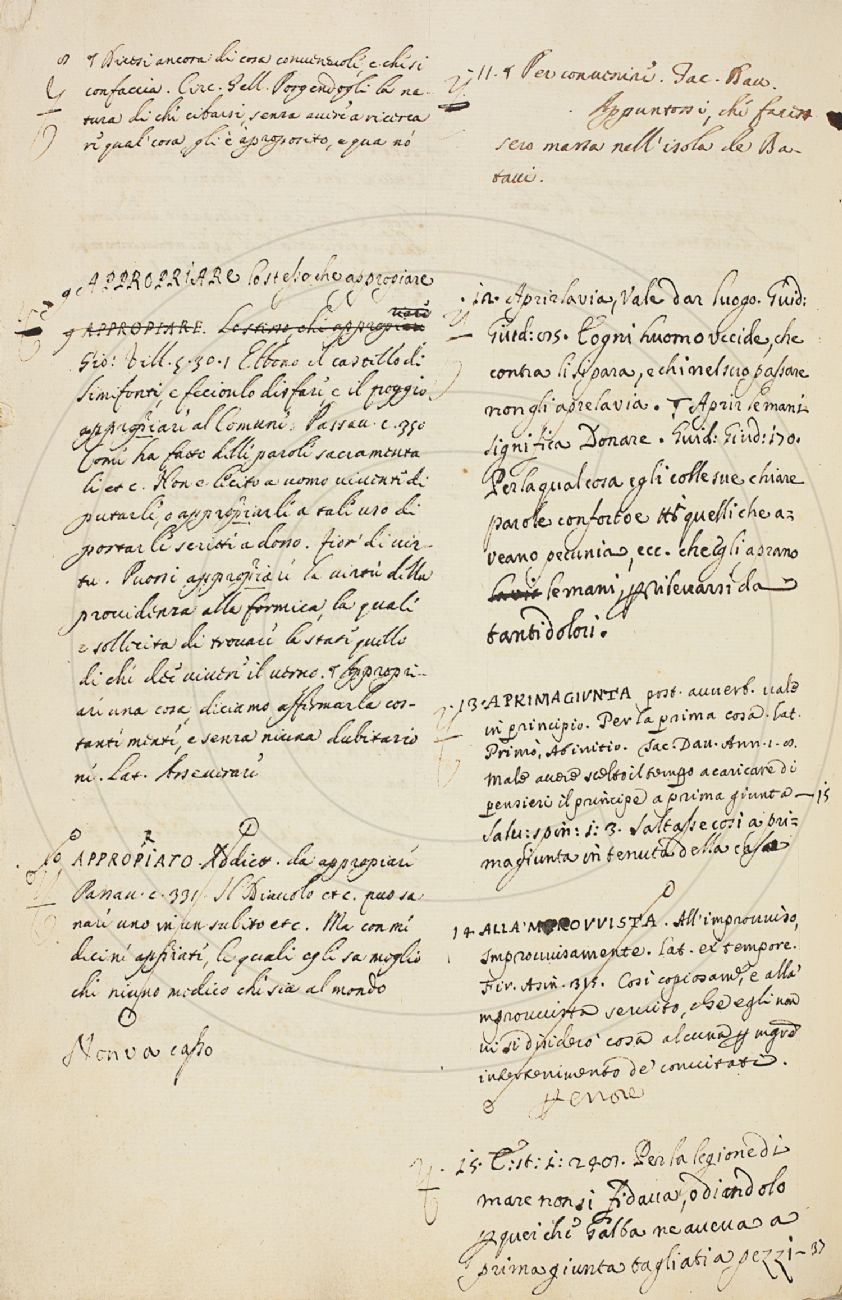 8 ¶ Diresi ancora di cosa convenevole, e che si
confaccia. Circ. Gell. Porgendogli la na-
tura di che cibarsi, senza avere a ricerca
re qual cosa gli è a proposito, e qua nó
9 APPROPRIARE Lo stesso che appropiare
9 APPROPIARE. Lo stesso che appropriare
Gio: Vill. 5. 30. 1 Ebbono il castello di
Simifonti, e feciонlo disfare, e il poggio
appropriare al Comune: Passav. c. 350
Come ha fatto delle parole sacramenta
li etc. Non e lecito a uomo vivente di
putarle, o appropriarle a tale uso di
portarle scritte a dosso. Fior' di vir-
tu. Puossi appropriare la virtù della
providenza alla formica, la quale
è sollicita di trovare la state quello
di che dee vivere il verno. ¶ Appropri-
are una cosa, diciamo affermarla cos-
tante mente, e senza niuna dubitazio
ne. Lat. Asseverare
10 APPROPIATO. Addiet. da appropiare
Passav. c. 331. Il Diavolo etc. puo sa
nare uno in un subito etc. Ma con me
dicine appriate, le quali egli sa meglio
che niuno medico che sia al mondo
Non va casso
11. ¶ Per convenire. Tac. Dav.
Appuntossi, che faces
sero massa nell'isola de Ba-
tavi.
12. Aprir la via, Vale dar luogo. Guid:
Guid: 015. E ogni huomo uccide, che
contra li si para, e chi nel suo passare
non gli apre la via. ¶ Aprir le mani
significa Donare. Guid: Giud: 170.
Per la qual cosa egli colle sue chiare
parole confortoe quelli che a=
veano pecunia, ecc. che egli aprano
le mani, p rilevarsi da
tanti dolori.
13. A PRIMA GIUNTA post. avverb. vale
in principio. Per la prima cosa. Lat.
Primò, Ab initio. Tac. Dav. Ann. 1. 8.
Male avere scelto il tempo a caricare di
pensieri il principe a prima giunta — 15
Salv: spin: 1: 3. Saltasse così a pri=
ma giunta in tenuta della casa
14 ALLA 'MPROVVISTA. All'improvviso,
Improvvisamente. Lat. ex tempore.
Fir. Asin. 315. Così copiosam.e, e alla
mprovvista servito, che egli non
vi si desiderò cosa alcuna p
intertenimento de' convitati.
p errore
15. T: st: 1: 240. Per la legione di
mare non si fidava, odiandolo
p quei che Galba ne aveva a
prima giunta tagliati a pezzi — 37